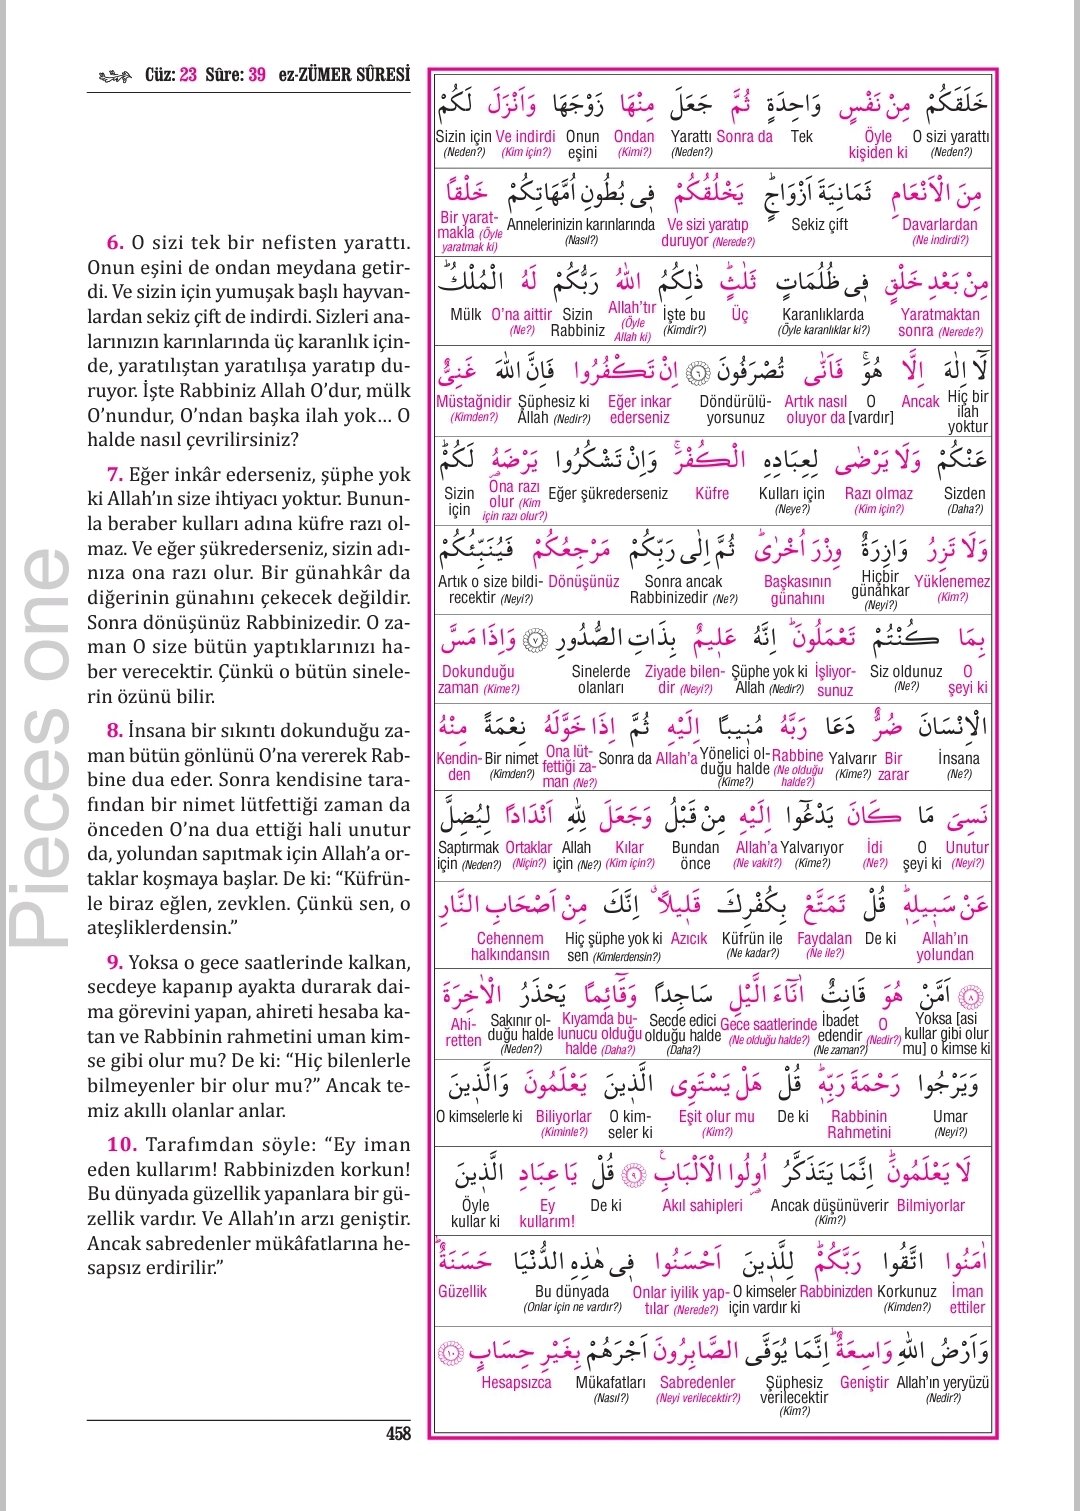 Cüz: 23 Sûre: 39 ez-ZÜMER SÛRESİ
6. O sizi tek bir nefisten yarattı.
Onun eşini de ondan meydana getir-
di. Ve sizin için yumuşak başlı hayvan-
lardan sekiz çift de indirdi. Sizleri ana-
larınızın karınlarında üç karanlık için-
de, yaratılıştan yaratılışa yaratıp du-
ruyor. İşte Rabbiniz Allah O’dur, mülk
O’nundur, O’ndan başka ilah yok... O
halde nasıl çevrilirsiniz?
7. Eğer inkâr ederseniz, şüphe yok
ki Allah’ın size ihtiyacı yoktur. Bunun-
la beraber kulları adına küfre razı ol-
maz. Ve eğer şükrederseniz, sizin adı-
nıza ona razı olur. Bir günahkâr da
diğerinin günahını çekecek değildir.
Sonra dönüşünüz Rabbinizedir. O za-
man O size bütün yaptıklarınızı ha-
ber verecektir. Çünkü o bütün sinele-
rin özünü bilir.
8. İnsana bir sıkıntı dokunduğu za-
man bütün gönlünü O’na vererek Rab-
bine dua eder. Sonra kendisine tara-
fından bir nimet lütfettiği zaman da
önceden O’na dua ettiği hali unutur
da, yolundan sapıtmak için Allah’a or-
taklar koşmaya başlar. De ki: “Küfrün-
le biraz eğlen, zevklen. Çünkü sen, o
ateşliklerdensin.”
9. Yoksa o gece saatlerinde kalkan,
secdeye kapanıp ayakta durarak dai-
ma görevini yapan, ahireti hesaba ka-
tan ve Rabbinin rahmetini uman kim-
se gibi olur mu? De ki: “Hiç bilenlerle
bilmeyenler bir olur mu?” Ancak te-
miz akıllı olanlar anlar.
10. Tarafımdan söyle: “Ey iman
eden kullarım! Rabbinizden korkun!
Bu dünyada güzellik yapanlara bir gü-
zellik vardır. Ve Allah’ın arzı geniştir.
Ancak sabredenler mükâfatlarına he-
sapsız erdirilir.”
458
خَلَقَكُمْ مِنْ نَفْسٍ وَاحِدَةٍ ثُمَّ جَعَلَ مِنْهَا زَوْجَهَا وَاَنْزَلَ لَكُمْ
Sizin için Ve indirdi Onun Ondan Yarattı Sonra da Tek Öyle O sizi yarattı
(Neden?) (Kim için?) eşini (Kimi?) (Neden?) kişiden ki (Neden?)
مِنَ الْاَنْعَامِ ثَمَانِيَةَ اَزْوَاجٍۜ يَخْلُقُكُمْ ف۪ي بُطُونِ اُمَّهَاتِكُمْ خَلْقًا
Bir yarat- Annelerinizin karınlarında Ve sizi yaratıp Sekiz çift Davarlardan
makla (Öyle (Nasıl?) duruyor (Nerede?) (Ne indirdi?)
yaratmak ki)
مِنْ بَعْدِ خَلْقٍ ف۪ي ظُلُمَاتٍ ثَلٰثٍۜ ذٰلِكُمُ اللّٰهُ رَبُّكُمْ لَهُ الْمُلْكُۜ
Mülk O’na aittir Sizin Allah’tır İşte bu Üç Karanlıklarda Yaratmaktan
(Ne?) Rabbiniz (Öyle (Kimdir?) (Öyle karanlıklar ki?) sonra (Nerede?)
Allah ki)
لَٓا اِلٰهَ اِلَّا هُوَۚ فَاَنّٰى تُصْرَفُونَ ٦ اِنْ تَكْفُرُوا فَاِنَّ اللّٰهَ غَنِيٌّ
Müstağnidir Şüphesiz ki Eğer inkar Döndürülü- Artık nasıl O Ancak Hiç bir
(Kimden?) Allah (Nedir?) ederseniz yorsunuz oluyor da [vardır] ilah
yoktur
عَنْكُمْ وَلَا يَرْضٰى لِعِبَادِهِ الْكُفْرَۚ وَاِنْ تَشْكُرُوا يَرْضَهُ لَكُمْۜ
Sizin Ona razı Eğer şükrederseniz Küfre Kulları için Razı olmaz Sizden
için olur (Kim (Neye?) (Kim için?) (Daha?)
için razı olur?)
وَلَا تَزِرُ وَازِرَةٌ وِزْرَ اُخْرٰىۜ ثُمَّ اِلٰى رَبِّكُمْ مَرْجِعُكُمْ فَيُنَبِّئُكُمْ
Artık o size bildi- Dönüşünüz Sonra ancak Başkasının Hiçbir Yüklenemez
recektir (Neyi?) Rabbinizedir (Ne?) günahını günahkar (Kim?)
(Neyi?)
بِمَا كُنْتُمْ تَعْمَلُونَۜ اِنَّهُ عَل۪يمٌ بِذَاتِ الصُّدُورِ ٧ وَاِذَا مَسَّ
Dokunduğu Sinelerde Ziyade bilen- Şüphe yok ki İşliyor- Siz oldunuz O
zaman (Kime?) olanları dir (Neyi?) Allah (Nedir?) sunuz (Ne?) şeyi ki
الْاِنْسَانَ ضُرٌّ دَعَا رَبَّهُ مُن۪يبًا اِلَيْهِ ثُمَّ اِذَا خَوَّلَهُ نِعْمَةً مِنْهُ
Kendin- Bir nimet Ona lüt- Sonra da Allah’a Yönelici ol- Rabbine Yalvarır Bir İnsana
den (Kimden?) fettiği za- duğu halde (Ne olduğu (Kime?) zarar (Ne?)
man (Ne?) (Kime?) halde?)
نَسِيَ مَا كَانَ يَدْعُٓوا اِلَيْهِ مِنْ قَبْلُ وَجَعَلَ لِلّٰهِ اَنْدَادًا لِيُضِلَّ
Saptırmak Ortaklar Allah Kılar Bundan Allah’a Yalvarıyor İdi O Unutur
için (Neden?) (Niçin?) için (Ne?) (Kim için?) önce (Ne vakit?) (Kime?) (Ne?) şeyi ki (Neyi?)
عَنْ سَب۪يلِه۪ۜ قُلْ تَمَتَّعْ بِكُفْرِكَ قَل۪يلًاۗ اِنَّكَ مِنْ اَصْحَابِ النَّارِ
Cehennem Hiç şüphe yok ki Azıcık Küfrün ile Faydalan De ki Allah’ın
halkındansın sen (Kimlerdensin?) (Ne kadar?) (Ne ile?) yolundan
٨ اَمَّنْ هُوَ قَانِتٌ اٰنَٓاءَ الَّيْلِ سَاجِدًا وَقَٓائِمًا يَحْذَرُ الْاٰخِرَةَ
Ahi- Sakınır ol- Kıyamda bu- Secde edici Gece saatlerinde İbadet O Yoksa [asi
retten duğu halde lunucu olduğu olduğu halde (Ne olduğu halde?) edendir (Nedir?) kullar gibi olur
(Neden?) halde (Daha?) (Daha?) (Ne zaman?) mu] o kimse ki
وَيَرْجُوا رَحْمَةَ رَبِّه۪ۜ قُلْ هَلْ يَسْتَوِي الَّذ۪ينَ يَعْلَمُونَ وَالَّذ۪ينَ
O kimselerle ki Biliyorlar O kim- Eşit olur mu De ki Rabbinin Umar
(Kiminle?) seler ki (Kim?) Rahmetini (Neyi?)
لَا يَعْلَمُونَۜ اِنَّمَا يَتَذَكَّرُ اُو۬لُوا الْاَلْبَابِ۟ ٩ قُلْ يَا عِبَادِ الَّذ۪ينَ
Öyle Ey De ki Akıl sahipleri Ancak düşünüverir Bilmiyorlar
kullar ki kullarım! (Kim?)
اٰمَنُوا اتَّقُوا رَبَّكُمْۜ لِلَّذ۪ينَ اَحْسَنُوا ف۪ي هٰذِهِ الدُّنْيَا حَسَنَةٌۜ
Güzellik Bu dünyada Onlar iyilik yap- O kimseler Rabbinizden Korkunuz İman
(Onlar için ne vardır?) tılar (Nerede?) için vardır ki (Kimden?) ettiler
وَاَرْضُ اللّٰهِ وَاسِعَةٌۜ اِنَّمَا يُوَفَّى الصَّابِرُونَ اَجْرَهُمْ بِغَيْرِ حِسَابٍ ١٠
Hesapsızca Mükafatları Sabredenler Şüphesiz Geniştir Allah’ın yeryüzü
(Nasıl?) (Neyi verilecektir?) verilecektir (Nedir?)
(Kim?)
Pieces one